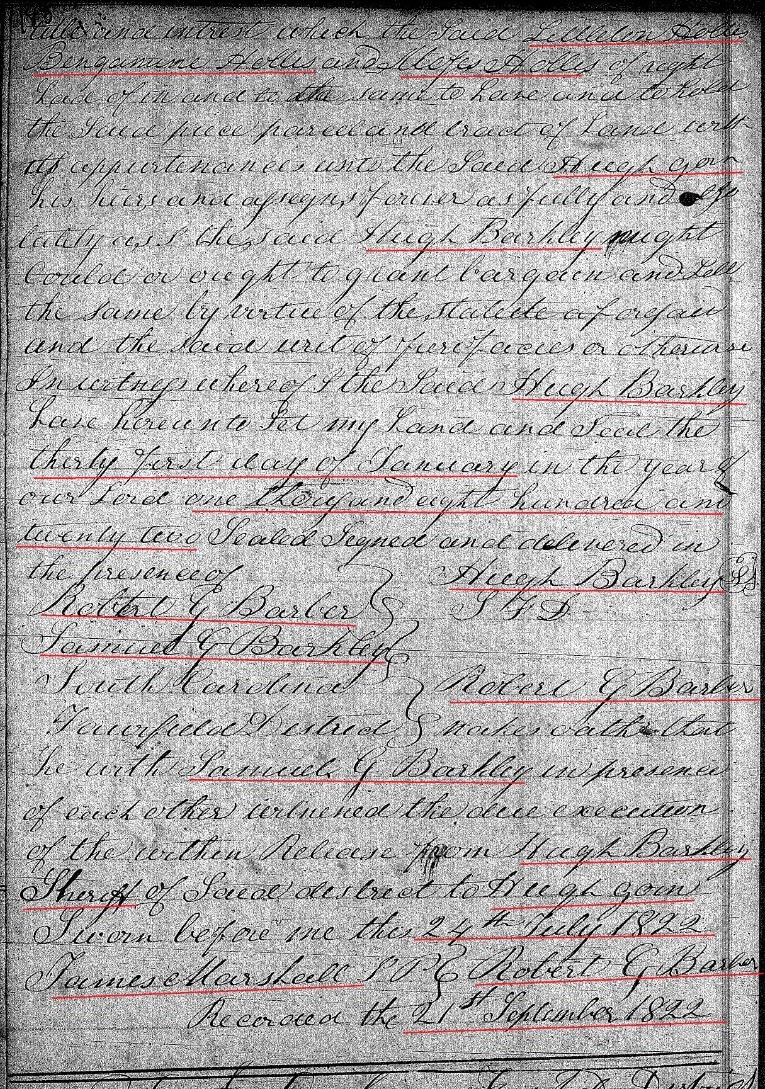 title and intrest which the Said Littleton Hollis
Bengamine Hollis and Moses Hollis of right
had of in and to the same to have and to hold
the Said piece parcel and tract of Land with
its appurtenances unto the Said Hugh goin
his heirs and assigns forever as fully and
as I the said Hugh Barkley might
Could or ought to grant bargain and Sell
the same by virtue of the statute aforesaid
and the said writ of fierifacies or otherwise
In witness whereof I the Said Hugh Barkley
have hereunto Set my hand and Seal the
thirty first day of January in the year of
our Lord one thousand eight hundred and
twenty two Sealed Signed and delivered in
the presence of Hugh Barkley
Robert G Barber S F D
Samuel G Barkley
South Carolina Robert G Barber
Fairfield District makes oath that
he with Samuel G Barkley in presence
of each other witnened the due execution
of the within Release from Hugh Barkley
Sheriff of Said destrect to Hugh goin
Sworn before me this 24th July 1822
James Marshall Robert G Barber
Recorded the 21st September 1822